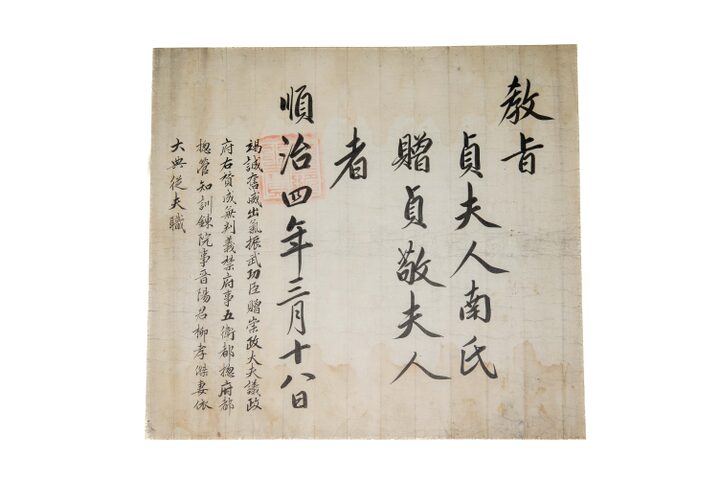 教旨
貞夫人南氏
贈貞敬夫人
者
順治四年三月十八日
竭誠奮威出氣振武功臣贈崇政大夫議政
府右贊成兼判義禁府事五衛都摠府都
摠管知訓鍊院事晋陽君柳孝傑妻依
大典從夫職